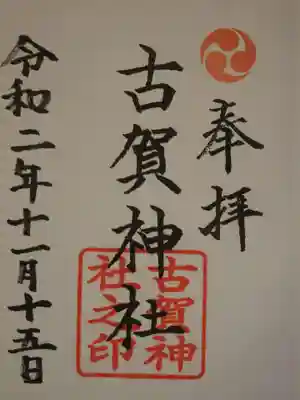 奉拝
古賀神社
古賀神
社之印
令和二年十一月十五日